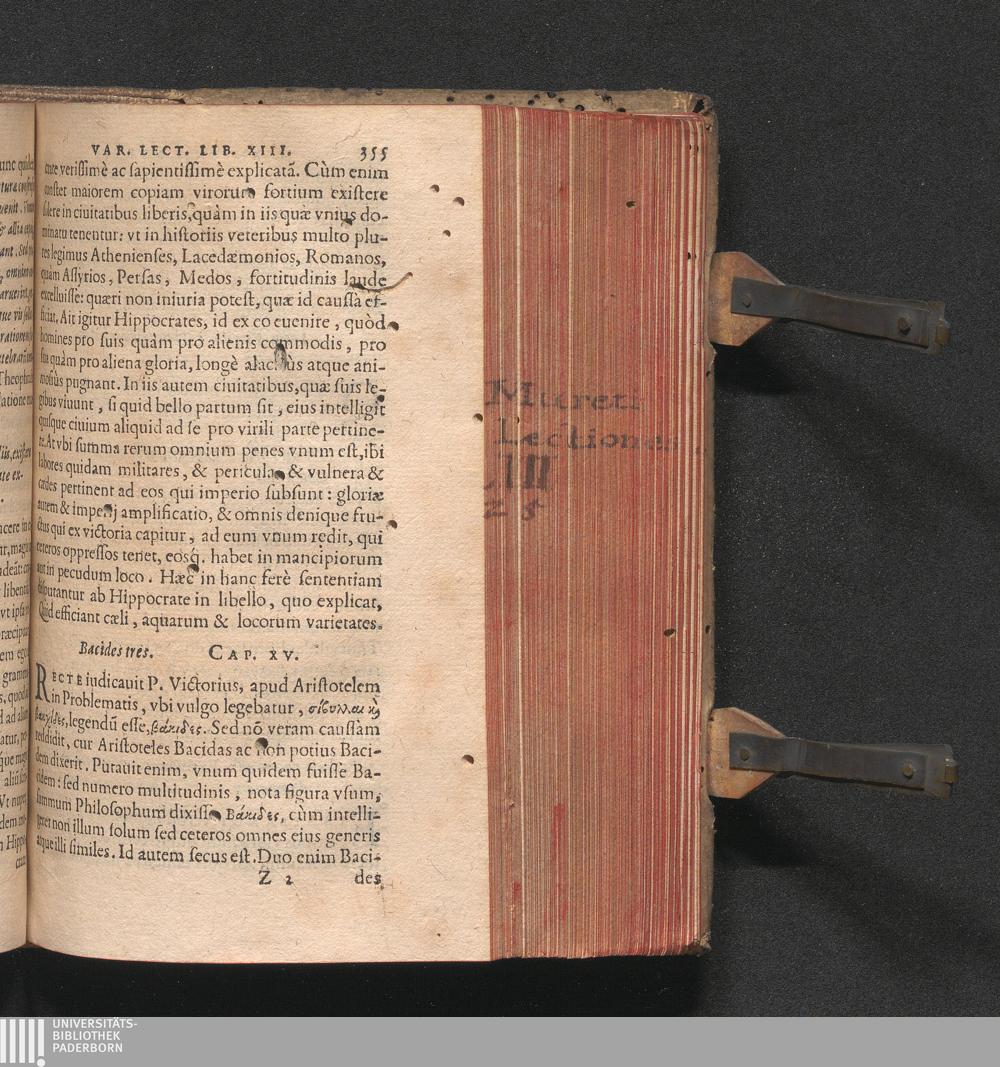 VAR. LECT. LIB. XIII. 355
verissimè ac sapientissimè explicatā. Cùm enim
constet maiorem copiam virorum fortium existere
solere in ciuitatibus liberis, quàm in iis quæ vnius do-
minatu tenentur: vt in historiis veteribus multo plu-
res legimus Athenienses, Lacedæmonios, Romanos,
quam Assyrios, Persas, Medos, fortitudinis laude
excelluisse: quæri non iniuria potest, quæ id caussa ef-
ficiat. Ait igitur Hippocrates, id ex eo euenire, quòd
homines pro suis quàm pro alienis commodis, pro
sua quàm pro aliena gloria, longè alacrius atque ani-
mosius pugnant. In iis autem ciuitatibus, quæ suis le-
gibus viuunt, si quid bello partum sit, eius intelligit
quisque ciuium aliquid ad se pro virili parte pertine-
re. At vbi summa rerum omnium penes vnum est, ibi
labores quidam militares, & pericula, & vulnera &
cædes pertinent ad eos qui imperio subsunt: gloriæ
autem & imperij amplificatio, & omnis denique fru-
ctus qui ex victoria capitur, ad eum vnum redit, qui
ceteros oppressos tenet, eosq́. habet in mancipiorum
aut in pecudum loco. Hæc in hanc ferè sententiam
disputantur ab Hippocrate in libello, quo explicat,
Quid efficiant cæli, aquarum & locorum varietates.
Bacides tres. CAP. XV.
RECTE iudicauit P. Victorius, apud Aristotelem
in Problematis, vbi vulgo legebatur, σίβυλλαι καὶ
βακχίδες, legendū esse, βάκιδες. Sed nō veram caussam
reddidit, cur Aristoteles Bacidas ac non potius Baci-
dem dixerit. Putauit enim, vnum quidem fuisse Ba-
cidem: sed numero multitudinis, nota figura vsum,
summum Philosophum dixisse Βάκιδες, cùm intelli-
geret non illum solum sed ceteros omnes eius generis
atque illi similes. Id autem secus est. Duo enim Baci-
Z 2 des
Mureti
Lectiones
Z 5
UNIVERSITÄTS-
BIBLIOTHEK
PADERBORN